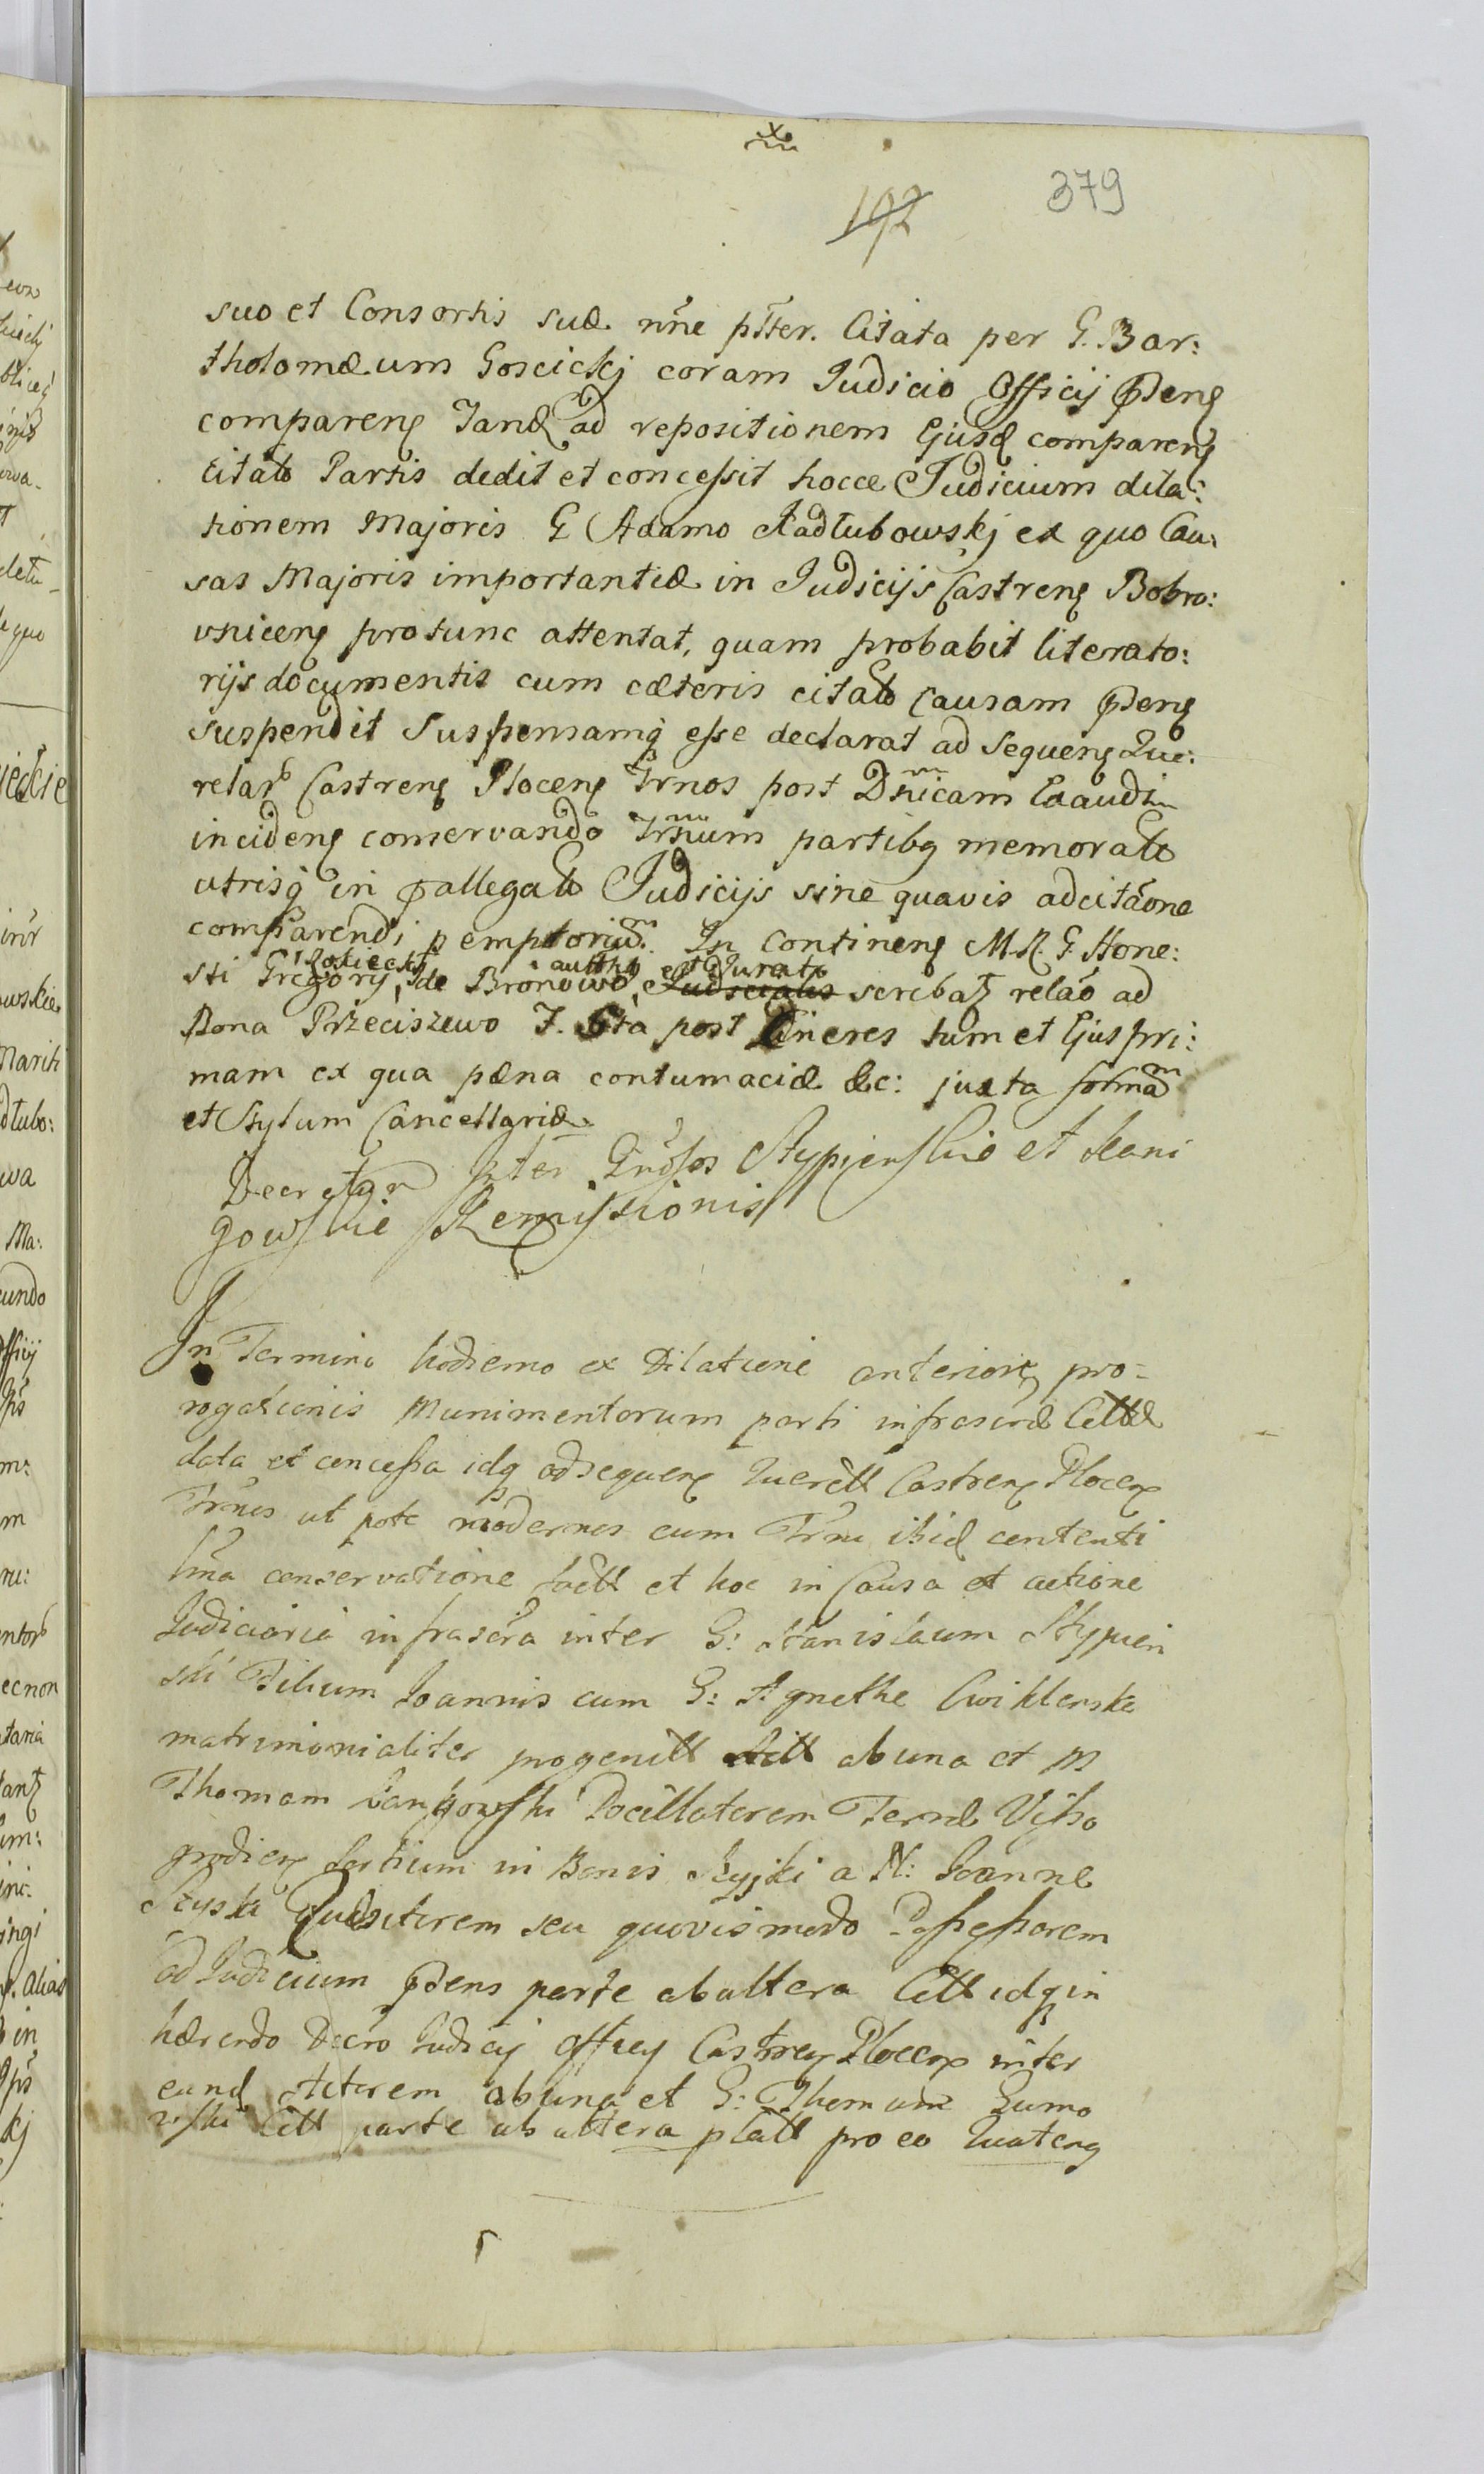 379
192
suo et Consortis suæ nñe ptter. Citata per G. Bar:
tholomæum Goscickj coram Judicio Officij Pdenς
comparenς Tand ad repositionem Ejusd comparenς
citato Partis dedit et conceſsit hocce Judicium dila:
tionem Majoris G Adamo Radłubowskj ex quo Cau:
sas Majoris importantiæ in Judicijs Castrenς Bobro:
vnicenς protunc attentat, quam probabit literato:
rijs documentis cum cæteris citato Causam Pdenς
suspendit Suspensamq eſse declarat ad sequenς Que:
relar Castrenς Plocenς Trnos post Dnicam Exaudi
incidenς conservando Trnum partibq memorato
utrisq in pallegato Judicijs sine quavis adcitãone
comparendi pemptorium. In Continenς M.R.G. Hone:
sti Gregorij Rokieckj de Bronowo authen et Jurati Judiciales scribat relão ad
Bona Przeciszewo F. 6ta post Cineres tum et Ejus pri:
mam ex qua pæna contumaciæ &c: juxta formam
et Stylum Cancellariæ
Decretum Inter Gnosos Stypienskie et Kani
gowskie Remiſsionis
In Termino hodierno ex Dilatione anterioris pro-
rogationis Munimentorum parti infrascræ Citatæ
data et conceſsa idq ad sequenς Querell Castrenς Plocenς
Trnos ut pote modernos cum Trni ibid contenti
conservatione et hoc in Causa et actione
Judiciaria infrascra inter G: Stanislaum Stypień
ski Filium Joannis cum G: Agnethe Cwiklenska
matrimonialiter progenitt Actt ab una et M
Thomam Kanigowski Pocillatorem Terræ Viſso
grodienς sortium in Bonis Ryſki a N: Joanne
Rzyski Quæsitorem seu quovismodo Poſseſsorem
ad Judicium Pdens parte ab altera Citt idq in
hærendo Decro Judicij Officij Castrenς Plocenς inter
eund Actorem ab una et G: Thomam Gumo
wski Citt parte ab altera platt pro eo Quatenq